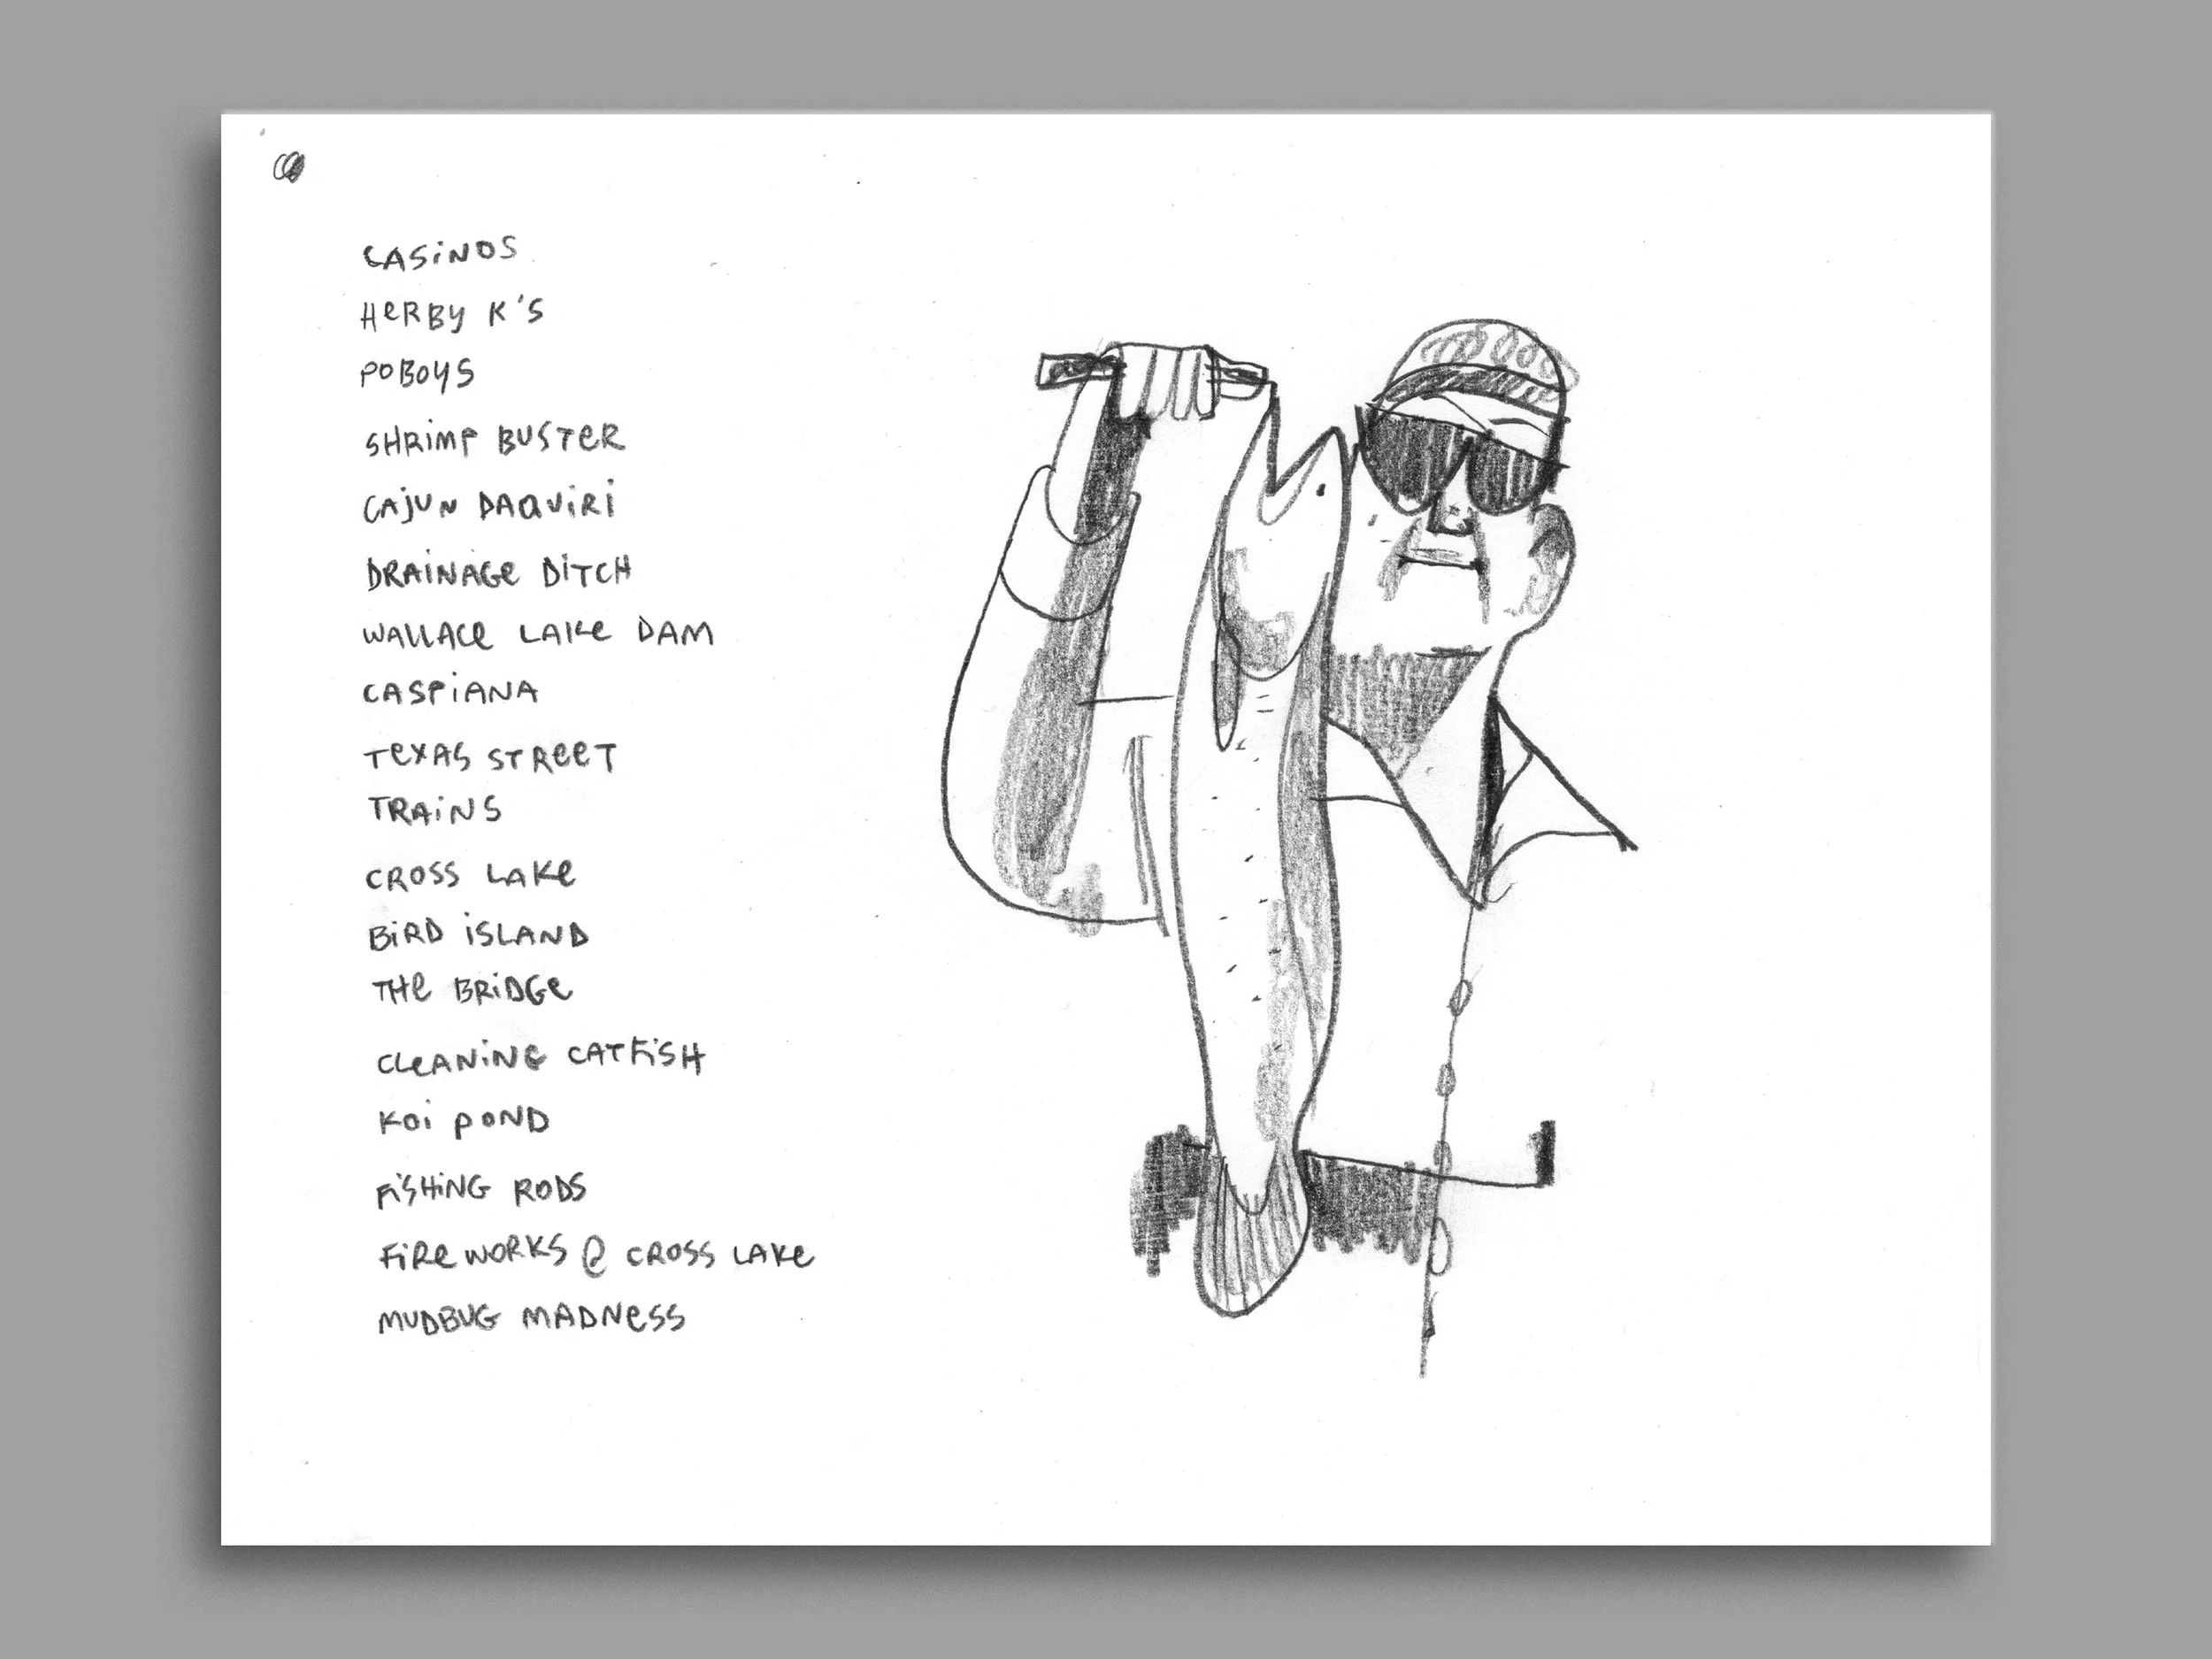 CASiNOS
HeRBy K'S
POBOYS
SHRimP BUSTeR
CAjUN DAQViRi
DRAiNAGe DiTCH
WALLACe LAKe DAM
CASPiANA
TeXAS STReeT
TRAiNS
CROSS LAKe
BiRD iSLAND
THe BRiDGe
CLeANiNG CATFiSH
KOi POND
FiSHiNG RODS
FiReWORKS @ CROSS LAKe
MUDBUG MADNeSS